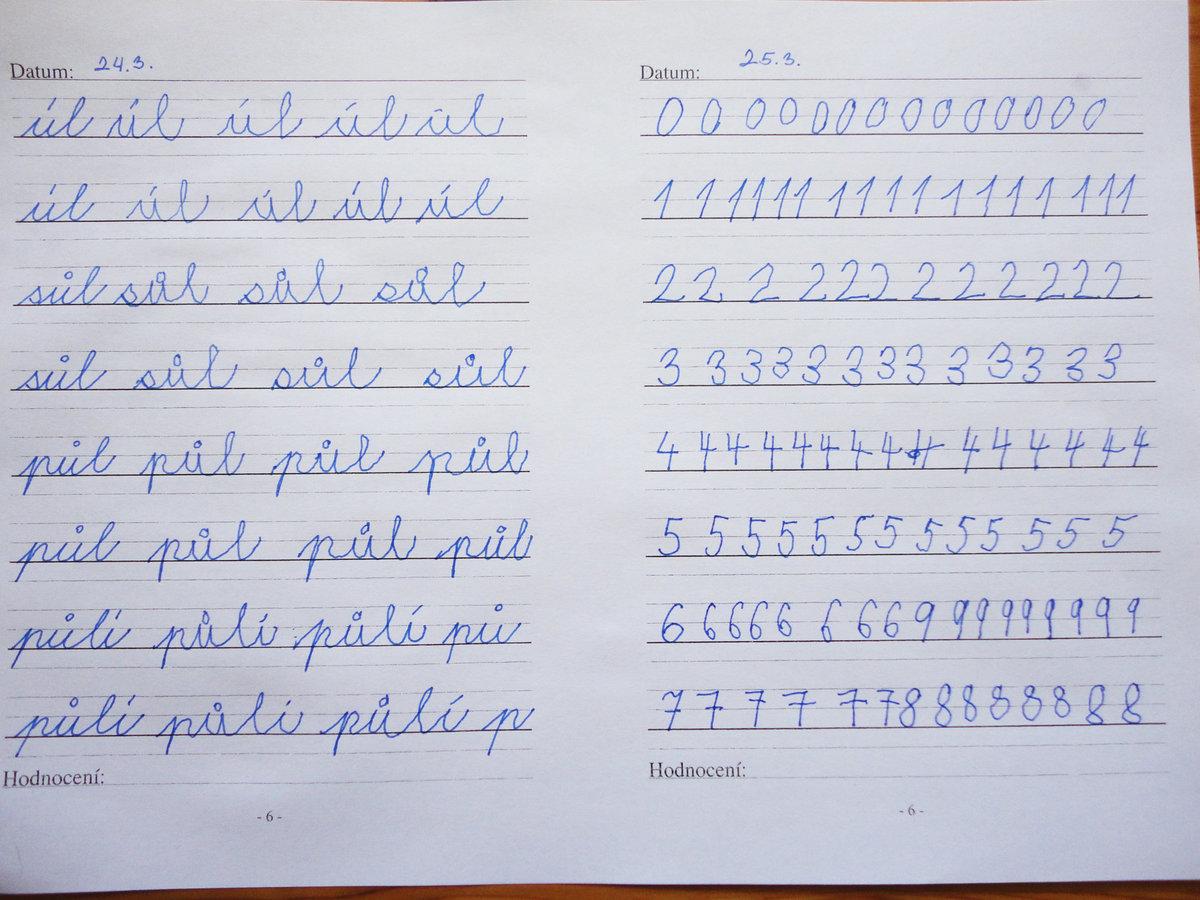 Datum: 24.3.
úl úl úl úl úl
úl úl úl úl úl
sůl sůl sůl sůl
sůl sůl sůl sůl
půl půl půl půl
půl půl půl půl
půlí půlí půlí pů
půlí půlí půlí p
Hodnocení:
- 6 -
Datum: 25.3.
0 0 0 0 0 0 0 0 0 0 0 0 0 0
1 1 1 1 1 1 1 1 1 1 1 1 1 1 1 1 1
2 2 2 2 2 2 2 2 2 2 2 2
3 3 3 3 3 3 3 3 3 3 3 3 3
4 4 4 4 4 4 4 4 4 4 4 4 4 4 4
5 5 5 5 5 5 5 5 5 5 5 5 5
6 6 6 6 6 6 6 6 9 9 9 9 9 9 9 9 9
7 7 7 7 7 7 8 8 8 8 8 8 8 8
Hodnocení:
- 6 -